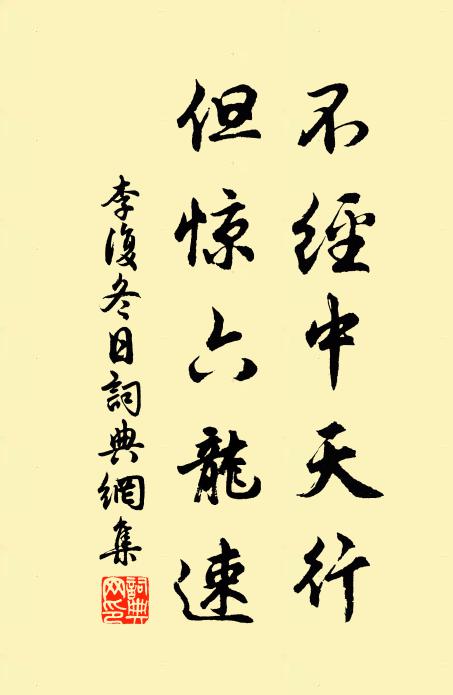 不經中天行
但惊六龍速
李復冬日詞典網集
詞典網印